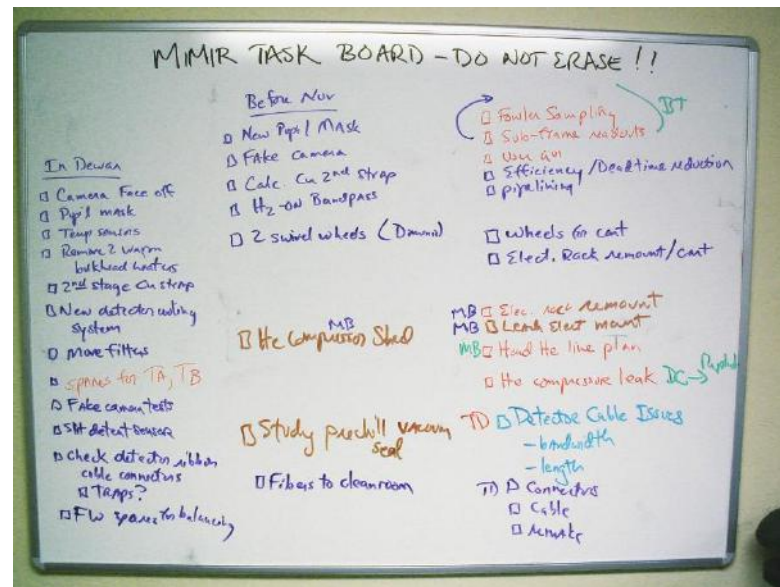 MIMIR TASK BOARD - DO NOT ERASE !!
In Dewar
□ Camera Face off
□ Pupil mask
□ Temp sensors
□ Remove 2 warm
bulkhead heaters
□ 2nd stage Cu strap
□ New detector cooling
system
□ Move filters
□ spares for TA, TB
□ Fake camera tests
□ detent sensor
□ Check detector ribbon
cable connectors
□ TRAPS?
□ FW spares for balancing
Before Nov
□ New Pupil MASK
□ FAke camera
□ Calc. Cu 2nd strap
□ H2-ON Bandpass
□ 2 swivel wheels
MB
□ He Compressor Shed
□ Study prechill vacuum
seal
□ Fibers to cleanroom
BT
□ Fowler Sampling
□ Sub-frame readouts
□ User GUI
□ Efficiency / Deadtime reduction
□ pipelining
□ wheels for cart
□ Elect. Rack remount/cart
MB □ Elec. rack remount
MB □ Leach Elect mount
MB □ Hard He line plan
□ He compressor leak DC →
TD □ Detector Cable Issues
- bandwidth
- length
TD □ Connectors
□ Cable
□ remake